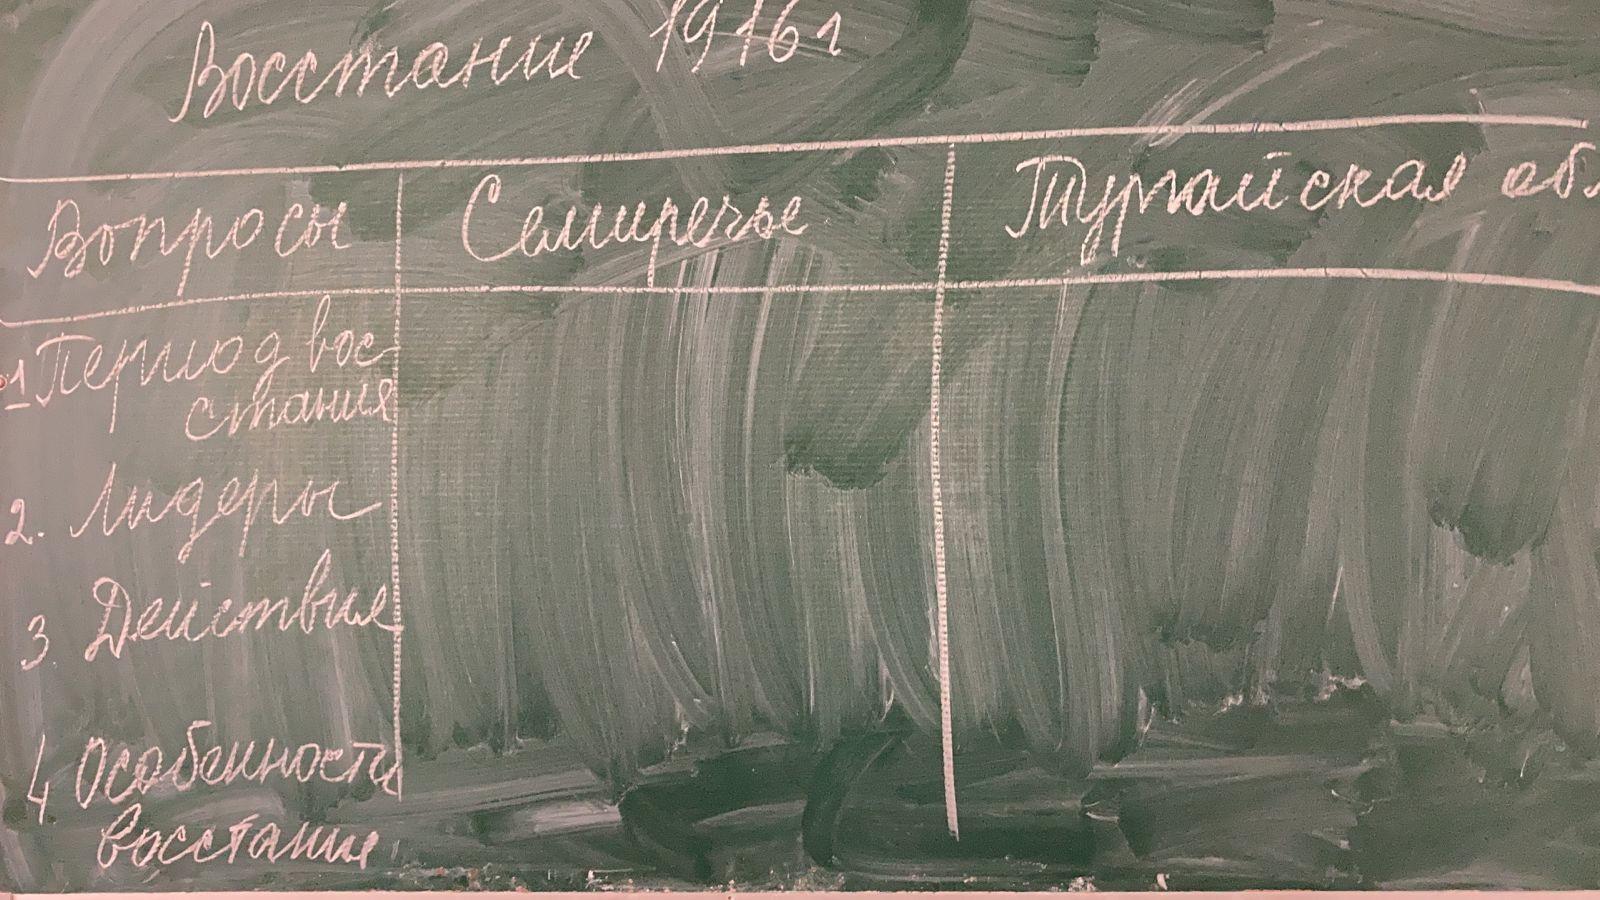 Восстание 1916г
Вопросы Семиречье Тургайская обл
1 Период вос-
стания
2. Лидеры
3. Действия
4 Особенность
восстания